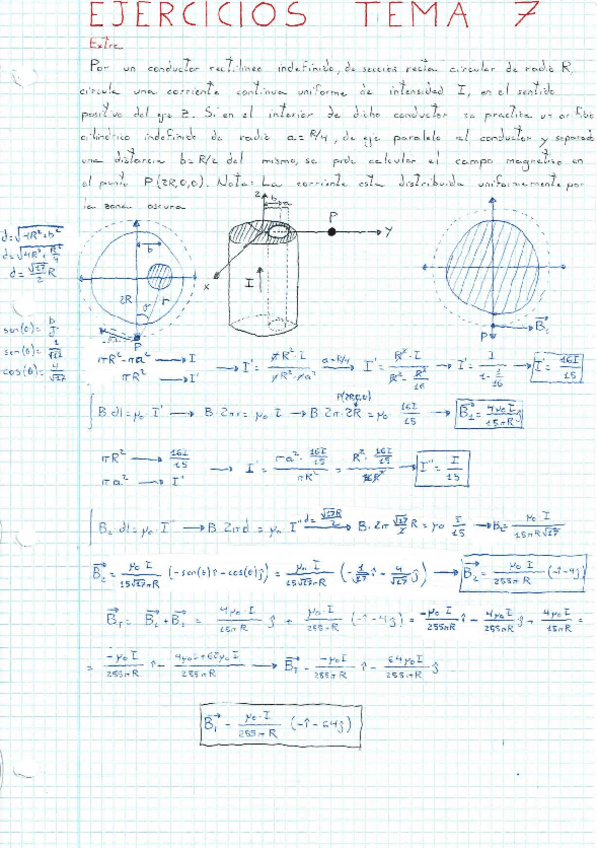 EJERCICIOS TEMA 7
Extra
Por un conductor rectilineo indefinido, de sección recta circular de radio R,
circula una corriente continua uniforme de intensidad I, en el sentido
positivo del eje z. Si en el interior de dicho conductor se practica un orificio
cilindrico indefinido de radio a = R/4, de eje paralelo al conductor y separado
una distancia b = R/2 del mismo, se pide calcular el campo magnético en
el punto P(2R,0,0). Nota: La corriente esta distribuida uniformemente por
la zona oscura.
d = √(4R²+b²)
d = √(4R²+R²/4)
d = √17/2 R
sen(θ) = b/d
sen(θ) = 1/√17
cos(θ) = 4/√17
b
2R
r
P
z
b
a
P
y
x
I
P
B₁
πR²-πa² → I
πR² → I'
→ I' = πR²·I / πR²-πa² → a=R/4 → I' = R²·I / R²-R²/16 → I' = I / 1-1/16 → I' = 16I/15
P(2R,0,0)
∫ B·dl = μ₀ I' → B·2πr = μ₀ I → B·2π·2R = μ₀ 16I/15 → B₁ = 4μ₀I/15πR j
πR² → 16I/15
πa² → I'
→ I' = πa²·16I/15 / πR² = R²·16I/15 / 16R² → I'' = I/15
∫ B₂·dl = μ₀·I'' → B·2πd = μ₀ I'' → d=√17R/2 → B·2π √17/2 R = μ₀ I/15 → B₂ = μ₀ I / 15πR√17
B₂ = μ₀ I / 15√17πR (-sen(θ)î - cos(θ)j) = μ₀ I / 15√17πR (-1/√17 î - 4/√17 j) → B₂ = μ₀ I / 255πR (-î-4j)
B_T = B₁ + B₂ = 4μ₀·I / 15πR j + μ₀·I / 255πR (-î-4j) = -μ₀·I / 255πR î - 4μ₀I / 255πR j + 4μ₀ I / 15πR =
= -μ₀ I / 255πR î - 4μ₀I+68μ₀I / 255πR → B_T = -μ₀I / 255πR î - 64μ₀I / 255πR j
B_T = μ₀·I / 255πR (-î-64j)